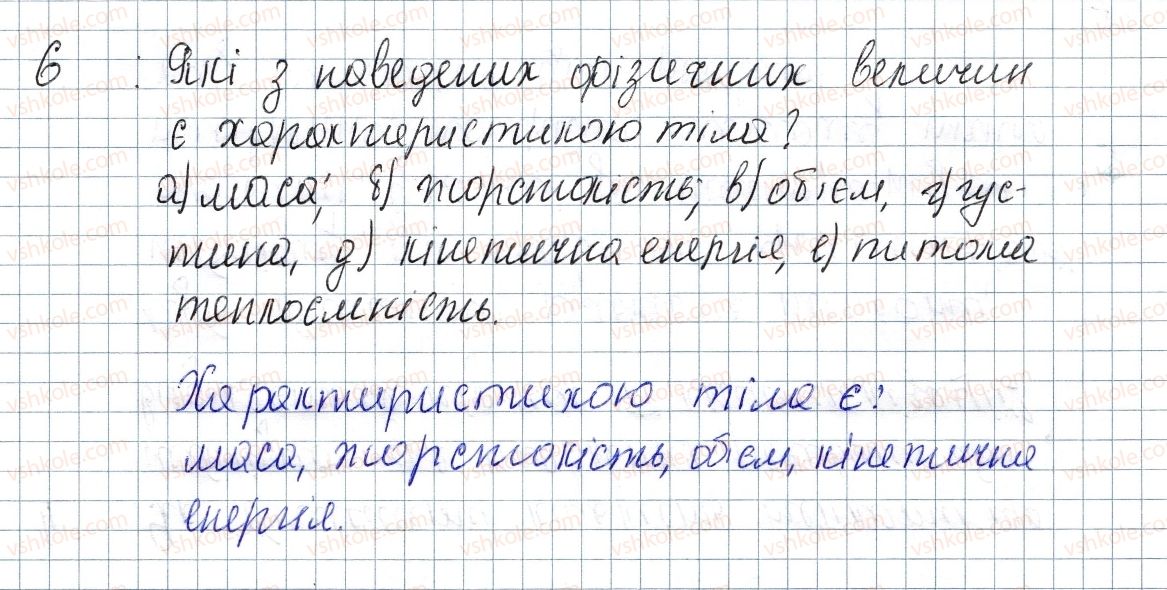 6 : Які з наведених фізичних величин
є характеристикою тіла?
а) маса; б) жорстокість; в) об'єм, г) гус-
тина, д) кінетична енергія, е) питома
теплоємність.
Характиристикою тіла є:
маса, жорстокість, об'єм, кінетична
енергія.